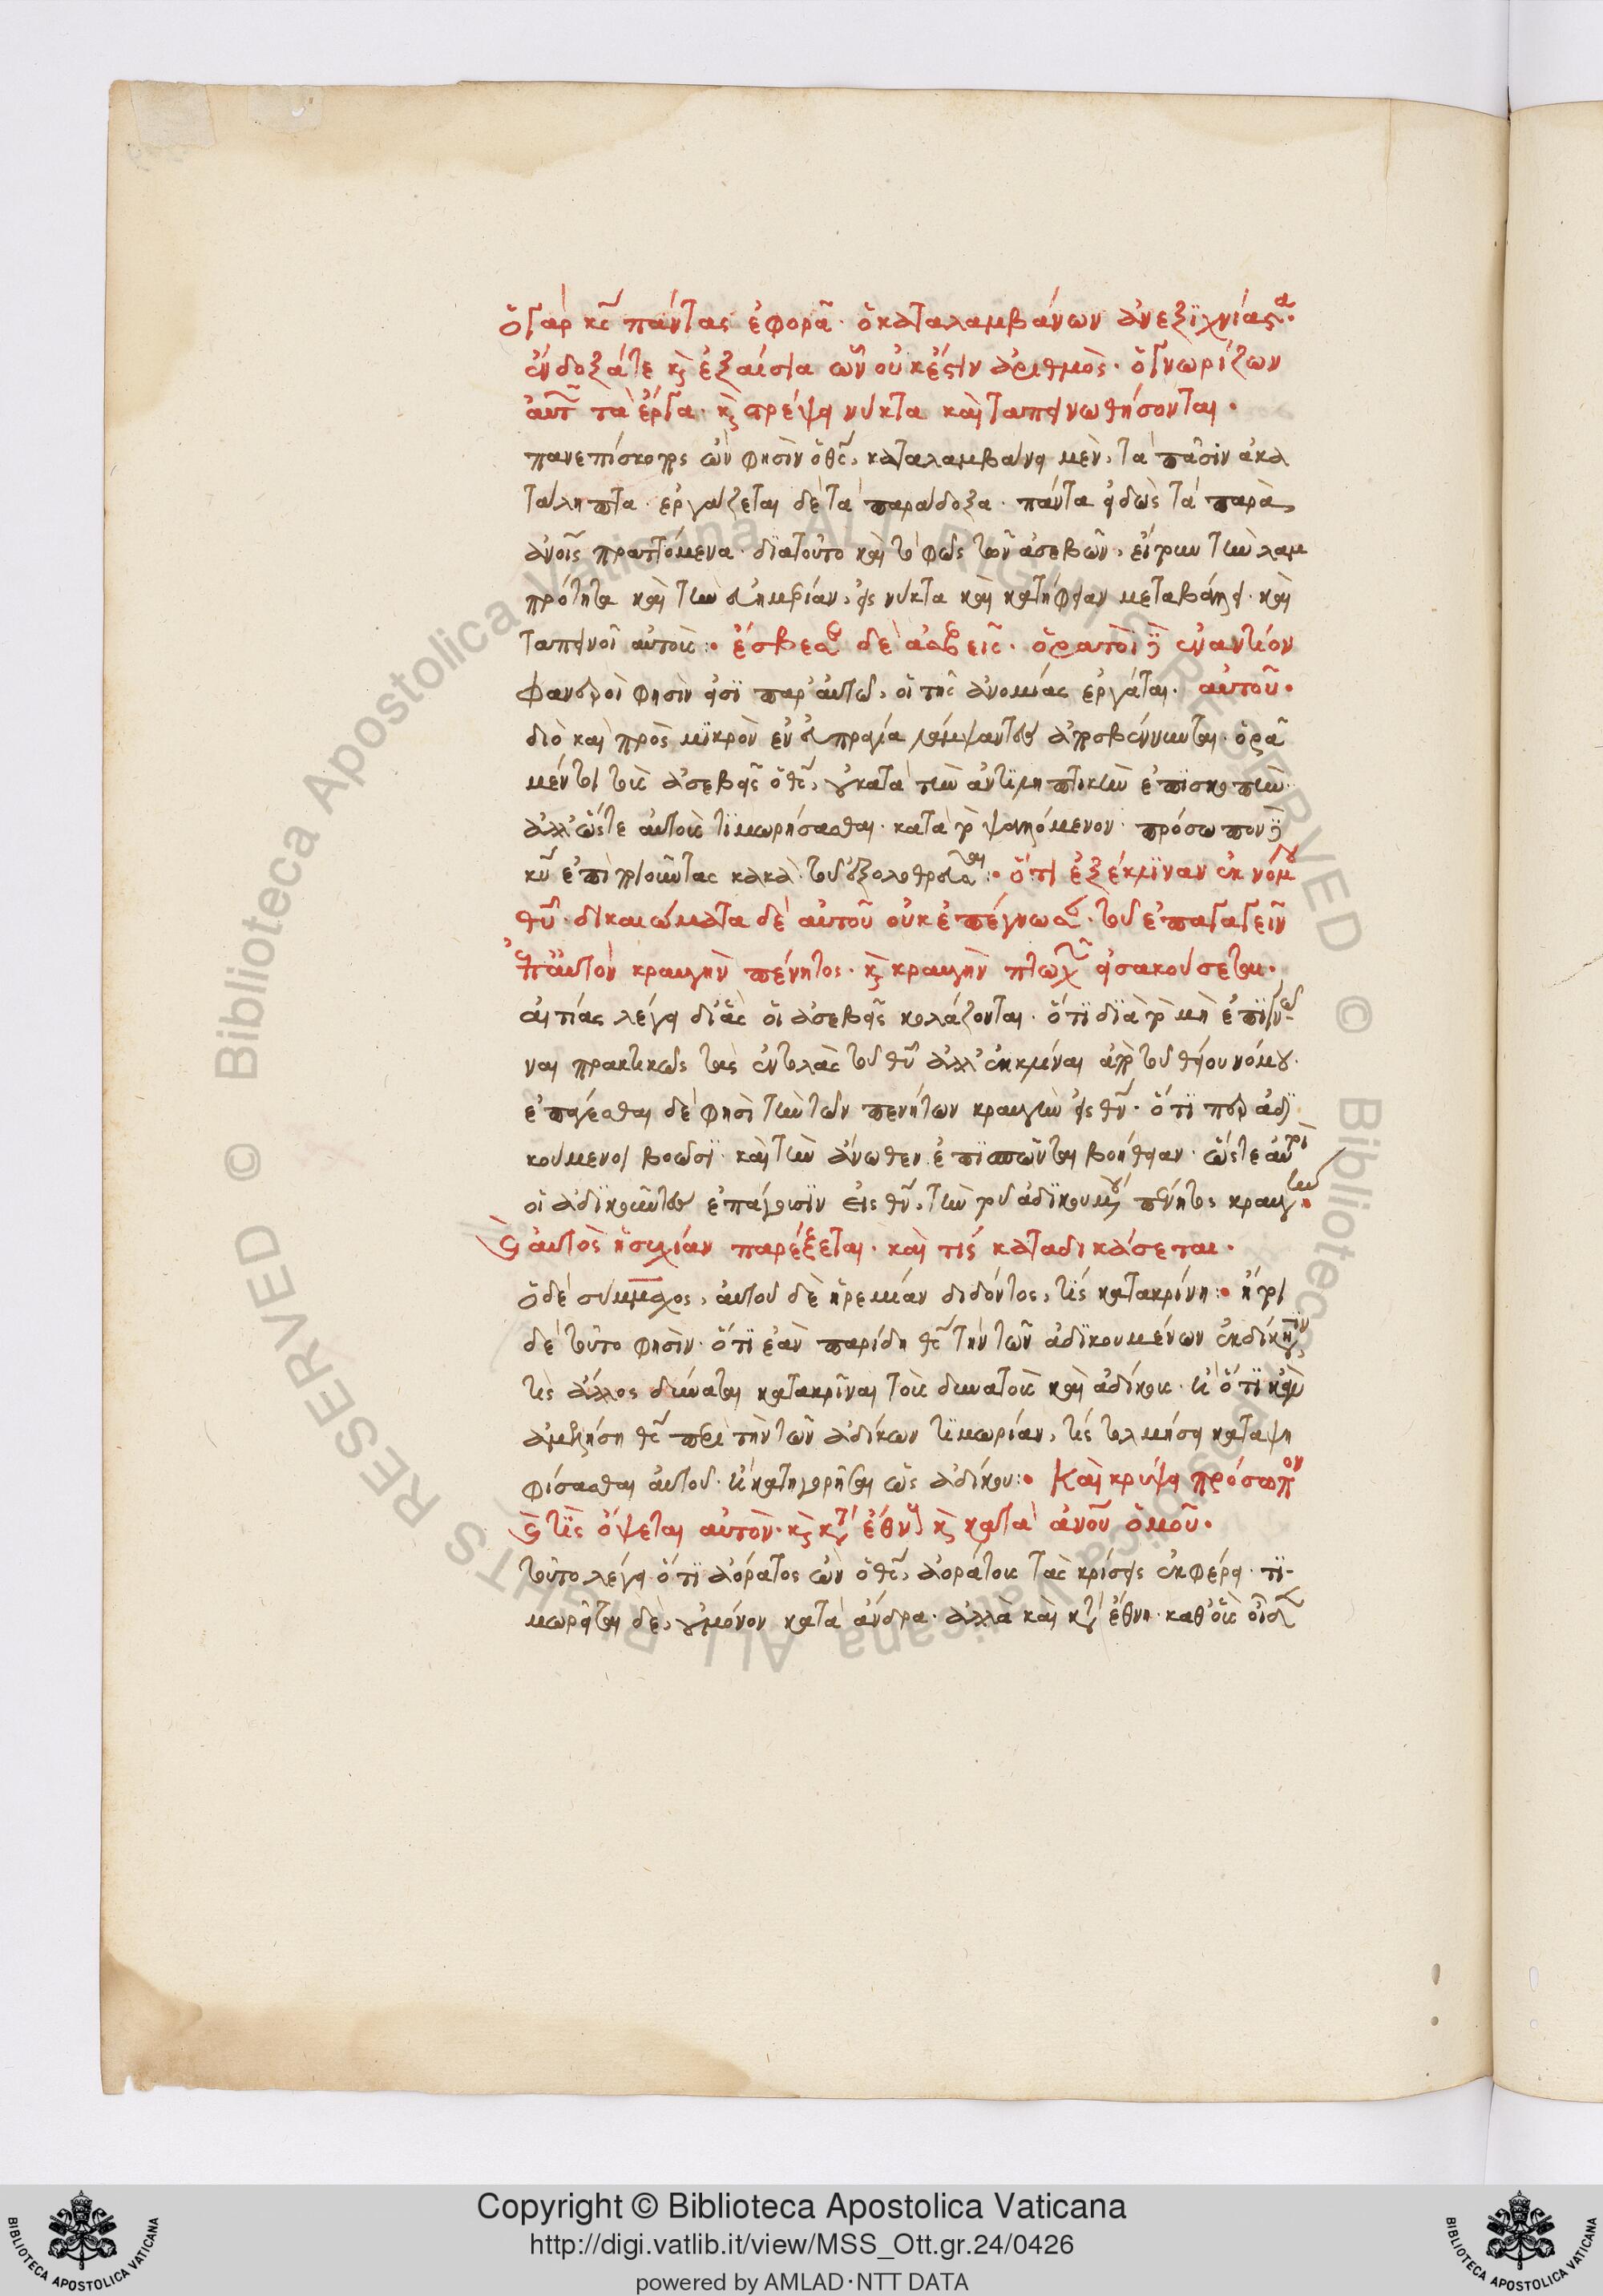 ὁ γὰρ κς πάντας ἐφορᾶ· ὁ καταλαμβάνων ἀνεξϊχνίαςα·
ἔνδοξά τε κ ἐξαίσια ὧν οὐκ ἔστιν ἀριθμὸς· ὁ γνωρίζων
αὐτ τὰ ἔργα· κ στρέψει νύκτα καὶ ταπεινωθήσονται·
πανεπίσκοπος ὢν φησὶν ὁ θς, καταλαμβάνει μὲν, τὰ πᾶσιν ἀκα
τάληπτα· ἐργάζεται δὲ τὰ παράδοξα· πάντα εἰδὼς τὰ παρὰ
ἀνοις πραττόμενα· διατοῦτο καὶ τὸ φῶς τῶν ἀσεβῶν, ἤγουν τὴν λαμ
πρότητα καὶ τὴν εὐημερίαν, εἰς νύκτα καὶ κατήφειαν μεταβάλλει· καὶ
ταπεινοῖ αὐτούς: ἔσβεσε δὲ ἀσεβεῖς· ὁρατοὶ δὲ ἐναντίον
φανεροὶ φησὶν εἰσϊ παρ' αὐτῶ, οἱ τῆς ἀνομίας ἐργάται· αὐτοῦ·
διὸ καὶ πρὸς μϊκρὸν ἐν εὐπραγία λάμψαντες ἀποσβέννυνται· ὁρᾶ
μέντοι τοὺς ἀσεβεῖς ὁ θς, οὐ κατὰ τὴν ἀντϊληπτικὴν ἐπϊσκοπὴν·
ἀλλ' ὥστε αὐτοὺς τϊμωρήσασθαι· κατὰ τὸ ψαλλόμενον· πρόσωπον δὲ
κυ ἐπὶ ποιοῦντας κακὰ· τοῦ ἐξολοθρεῦσαι: ὅτι ἐξέκλϊναν ἐκ νόμου
θυ· δικαιώματα δὲ αὐτοῦ οὐκ ἐπέγνωσαν· τοῦ ἐπαγαγεῖν
ἐπ' αὐτὸν κραυγὴν πένητος· κ κραυγὴν πτωχῶν εἰσακούσεται·
αἰτίας λέγει δι' ἃς οἱ ἀσεβεῖς κολάζονται· ὅτϊ διὰ τὸ μὴ ἐπϊγνῶ-
ναι πρακτικῶς τὰς ἐντολὰς τοῦ θυ ἀλλ' ἐκκλῖναι ἀπὸ τοῦ θείου νόμου·
ἐπάγεσθαι δὲ φησὶ τὴν τῶν πενήτων κραυγὴν εἰς θν· ὅτϊ περ ἀδϊ
κούμενοι βοῶσϊ· καὶ τὴν ἄνωθεν ἐπϊσπῶνται βοήθειαν· ὥστε αὐτοὶ
οἱ ἀδϊκοῦντες ἐπάγουσϊν εἰς θν, τὴν τοῦ ἀδϊκουμένου πένητος κραυγὴν·
κ αὐτὸς ἡσυχίαν παρέξεται· καὶ τίς καταδικάσεται·
ὁ δὲ σύμμαχος, αὐτοῦ δὲ ἠρεμίαν διδόντος, τίς κατακρίνη: ἤτοι
δὲ τοῦτο φησὶν· ὅτϊ ἐὰν παρίδη θς τὴν τῶν ἀδϊκουμένων ἐκδίκησϊν,
τίς ἄλλος δύναται κατακρῖναι τοὺς δυνατοὺς καὶ ἀδίκους· ἢ ὅτϊ κἂν
ἀμελήση θς περὶ τὴν τῶν ἀδίκων τϊμωρίαν, τίς τολμήσει καταψη
φίσασθαι αὐτοῦ· ἢ κατηγορῆσαι ὡς ἀδίκου: Καὶ κρύψει πρόσωπον
κ τίς ὄψεται αὐτὸν· κ κατὰ ἔθνους κ κατὰ ἀνου ὁμοῦ·
τοῦτο λέγει ὅτϊ ἀόρατος ὢν ὁ θς, ἀοράτους τὰς κρίσεις ἐκφέρει· τϊ-
μωρεῖται δὲ, οὐ μόνον κατὰ ἄνδρα· ἀλλὰ καὶ κατὰ ἔθνη· καθ' οὓς οἶδε
Copyright © Biblioteca Apostolica Vaticana
http://digi.vatlib.it/view/MSS_Ott.gr.24/0426
powered by AMLAD·NTT DATA